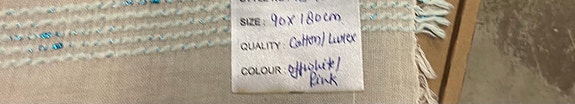 SIZE: 90 x 180cm
QUALITY: Cotton/Lurex
COLOUR: offwhite/
Pink